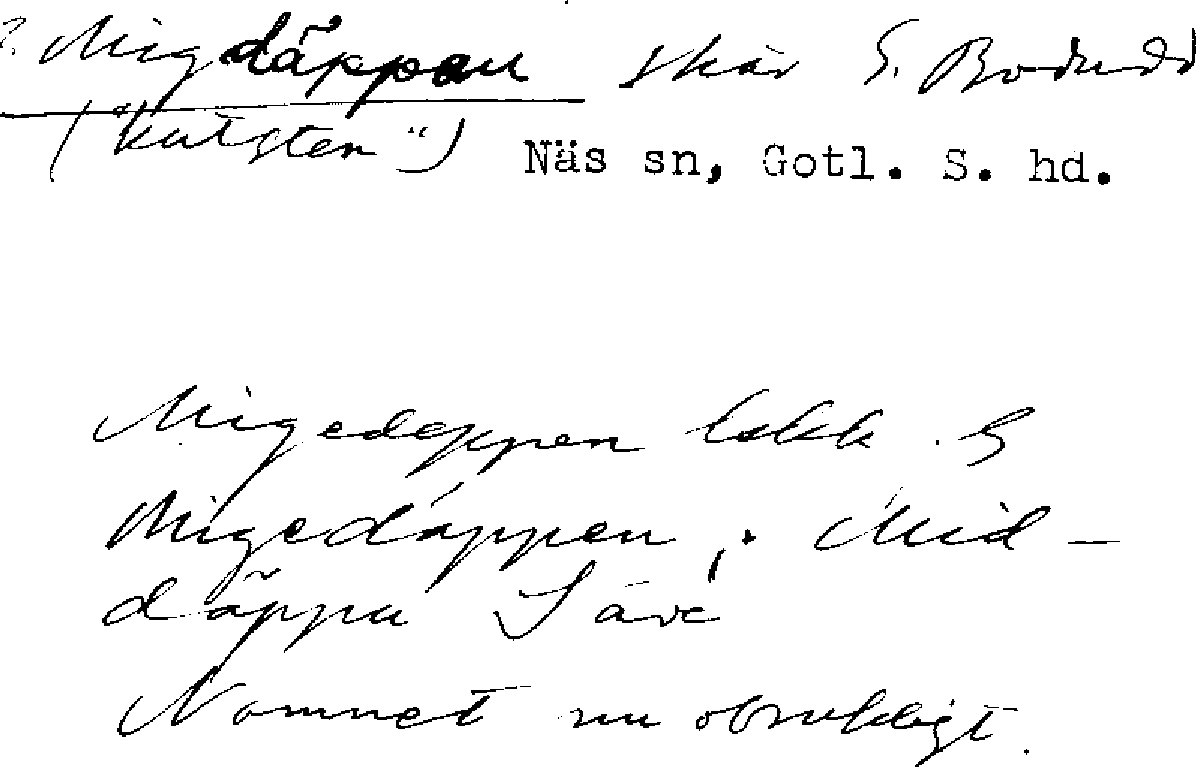 ? Migdäppen skär S. Bodudd
("kutsten")
Näs sn, Gotl. S. hd.
Migedeppen
Migedäppen; Mid-
däppu Säve
Namnet nu obrukligt.